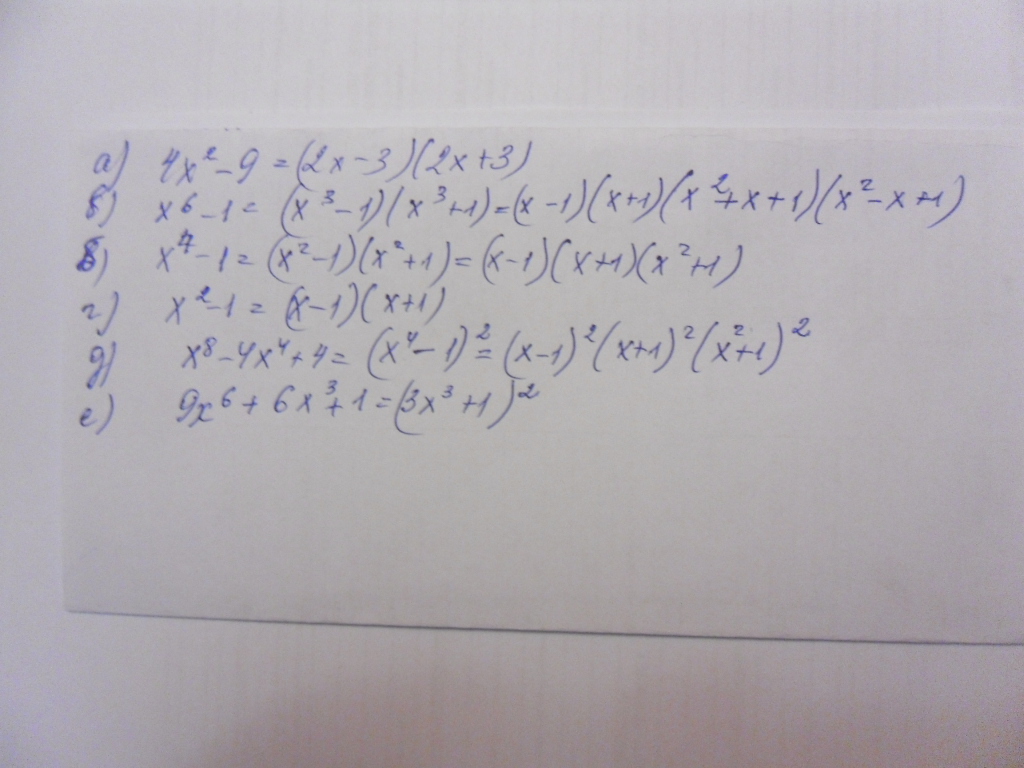 а) 4x² - 9 = (2x - 3)(2x + 3)
б) x⁶ - 1 = (x³ - 1)(x³ + 1) = (x - 1)(x + 1)(x² + x + 1)(x² - x + 1)
в) x⁴ - 1 = (x² - 1)(x² + 1) = (x - 1)(x + 1)(x² + 1)
г) x² - 1 = (x - 1)(x + 1)
д) x⁸ - 4x⁴ + 4 = (x⁴ - 1)² = (x - 1)²(x + 1)²(x² + 1)²
е) 9x⁶ + 6x³ + 1 = (3x³ + 1)²